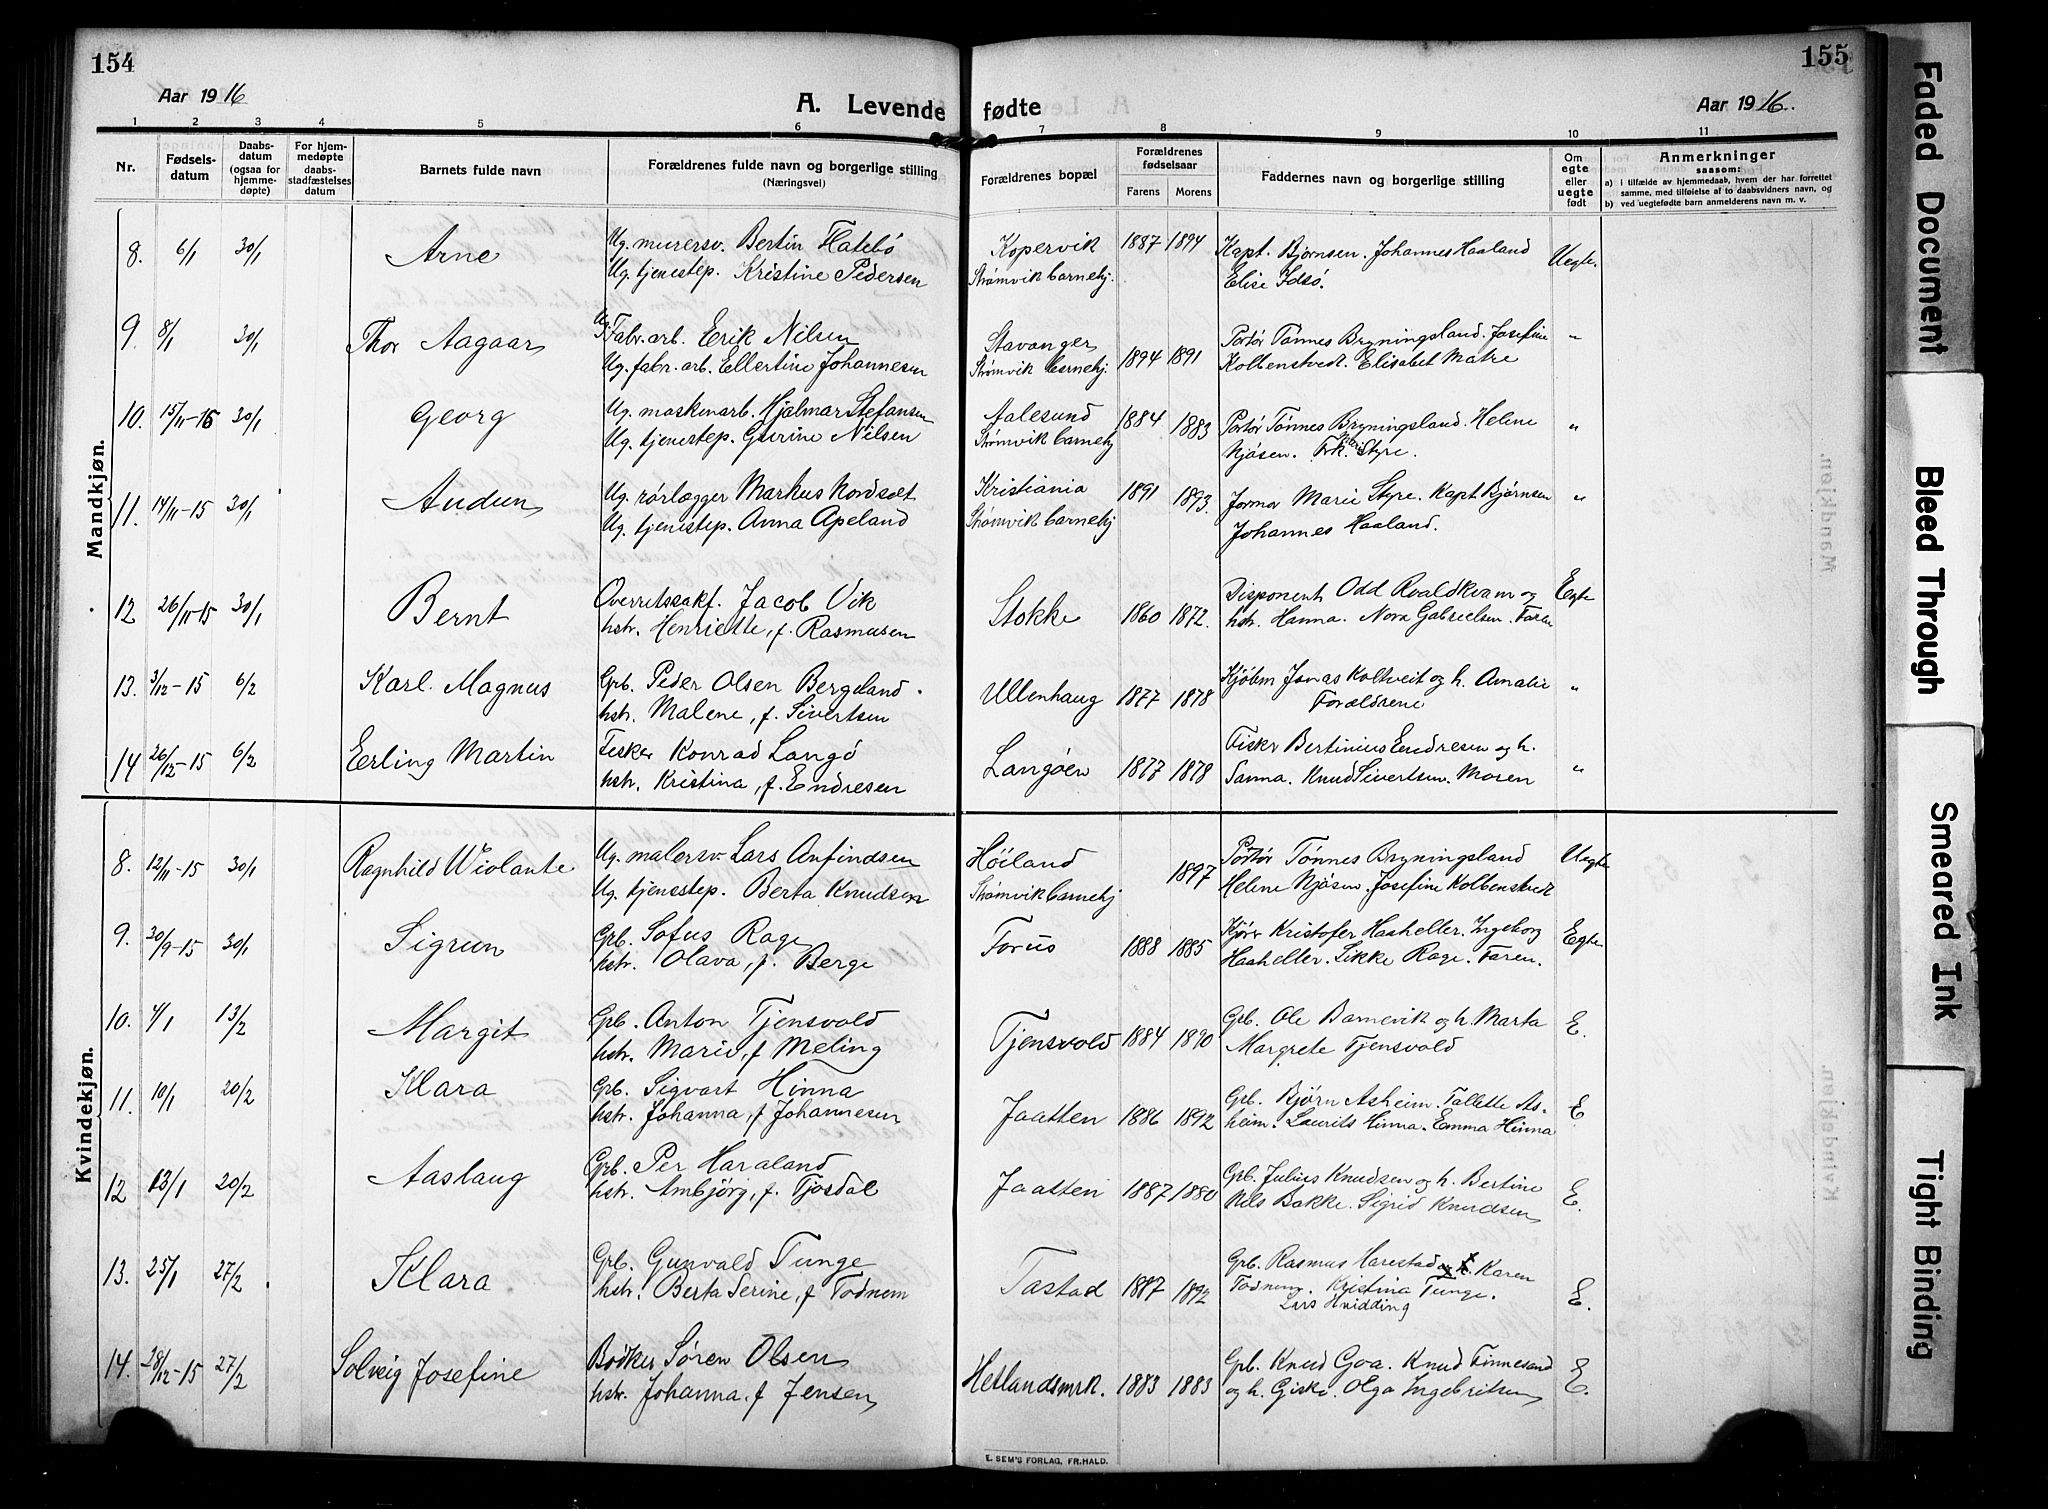 154
155
Aar 1916
A. Levende fødte
Aar 1916.
1 2 3 4 5 6 7 8 9 10 11
Nr.
Fødsels-
datum
Daabs-
datum
(ogsaa for
hjemme-
døpte)
For hjem-
medøpte
daabs-
stadfæstelses
datum
Barnets fulde navn
Forældrenes fulde navn og borgerlige stilling
(Næringsvei)
Forældrenes bopæl
Forældrenes
fødselsaar
Farens Morens
Faddernes navn og borgerlige stilling
Om
egte
eller
uegte
født
Anmerkninger
saasom:
a) i tilfælde av hjemmedaab, hvem der har forrettet
samme, med tilføielse af to daabsvidners navn, og
b) ved uegtefødte barn anmelderens navn m. v.
Mandkjøn.
8. 6/1 30/1 Arne Ug. murersv. Bertin Flatebø Kopervik 1887 1894 Kapt. Bjørnsen. Johannes Haaland Uegte.
Ug. tjenestep. Kristine Pedersen Strømvik barnehj. Elise Idsø.
9. 8/1 30/1 Thor Aagaar Ug. Fabr. arb. Erik Nilsen Stavanger 1894 1891 Portør Tønnes Bryningsland. Josefine "
Ug. fabr. arb. Ellertine Johannesen Strømvik barnehj. Kolbenstvedt. Elisabet Matre
10. 15/11-15 30/1 Georg Ug. maskinarb. Hjalmar Stefansen Aalesund 1884 1883 Portør Tønnes Bryningsland. Helene "
Ug. tjenestep. Gurine Nilsen Strømvik barnehj Njåsen. Frk. Styre.
11. 14/11-15 30/1 Audun Ug. rørlægger Markus Nordsoet Kristiania 1891 1893. Jormor Marie Styre. Kapt Bjørnsen "
Ug. tjenestep. Anna Apeland Strømvik barnehj Johannes Haaland.
12 26/11-15 30/1 Bernt Overretssakf. Jacob Vik Stokke 1860 1872. Disponent Odd Roaldkvam og Egte
hstr. Henriette, f. Rasmusen hstr. Hanna. Nora Gabrielsen. Faren
13. 3/12-15 6/2 Karl Magnus Grb. Peder Olsen Bergeland Ullenhaug 1877 1878 Kjøbm Jonas Koltveit og h. Amalie "
hstr. Malene, f. Sivertsen Forældrene
14 26/12-15 6/2 Erling Martin Fisker Konrad Langø Langøen 1877 1878 Fisker Bertinius Endresen og h. "
hstr. Kristina, f. Endresen Sanna. Knud Sivertsen. Moren
Kvindekjøn.
8. 12/11-15 30/1 Ragnhild Wiolante Ug. malersv. Lars Anfindsen Høiland 1897 Portør Tønnes Bryningsland Uegte
Ug. tjenestep. Berta Knudsen Strømvik barnehj Helene Njåsen. Josefine Kolbenstvedt
9. 30/9-15 30/1 Sigrun Grb. Sofus Rage Forus 1888 1885 Kjører Kristofer Haaheller. Ingeborg Egte
hstr. Olava, f. Berge Haaheller. Sikke Rage. Faren.
10. 4/1 13/2 Margit Grb. Anton Tjensvold Tjensvold 1884 1890 Grb. Ole Barnevik og h. Marta E.
hstr. Marie, f Meling Margrete Tjensvold
11. 10/1 20/2 Klara Grb. Sigvart Hinna Jaatten 1886 1892 Grb. Bjørn Asheim. Tallette As- E
hstr. Johanna, f Johannesen heim. Laurits Hinna. Emma Hinna
12 13/1 20/2 Aaslaug Grb. Per Haraland Jaatten 1887 1880 Grb. Julius Knudsen og h. Bertine E.
hstr. Ambjørg, f. Tjosdal Nils Bakke. Sigrid Knudsen
13. 25/1 27/2 Klara Grb. Gunvald Tunge Tastad 1887 1892 Grb. Rasmus Harestad og h. Karen E.
hstr. Berta Serine, f Todnem Todnem. Kristina Tunge.
Lars Hvidding
14. 28/12-15 27/2 Solveig Josefine Bødker Søren Olsen Hetlandsmrk. 1883 1883 Grb. Knud Goa. Knud Finnesand E.
hstr. Johanna, f Jensen og h. Giske. Olga Ingebritsen
E. SEM'S FORLAG, FR.HALD.
Faded Document
Bleed Through
Smeared Ink
Tight Binding